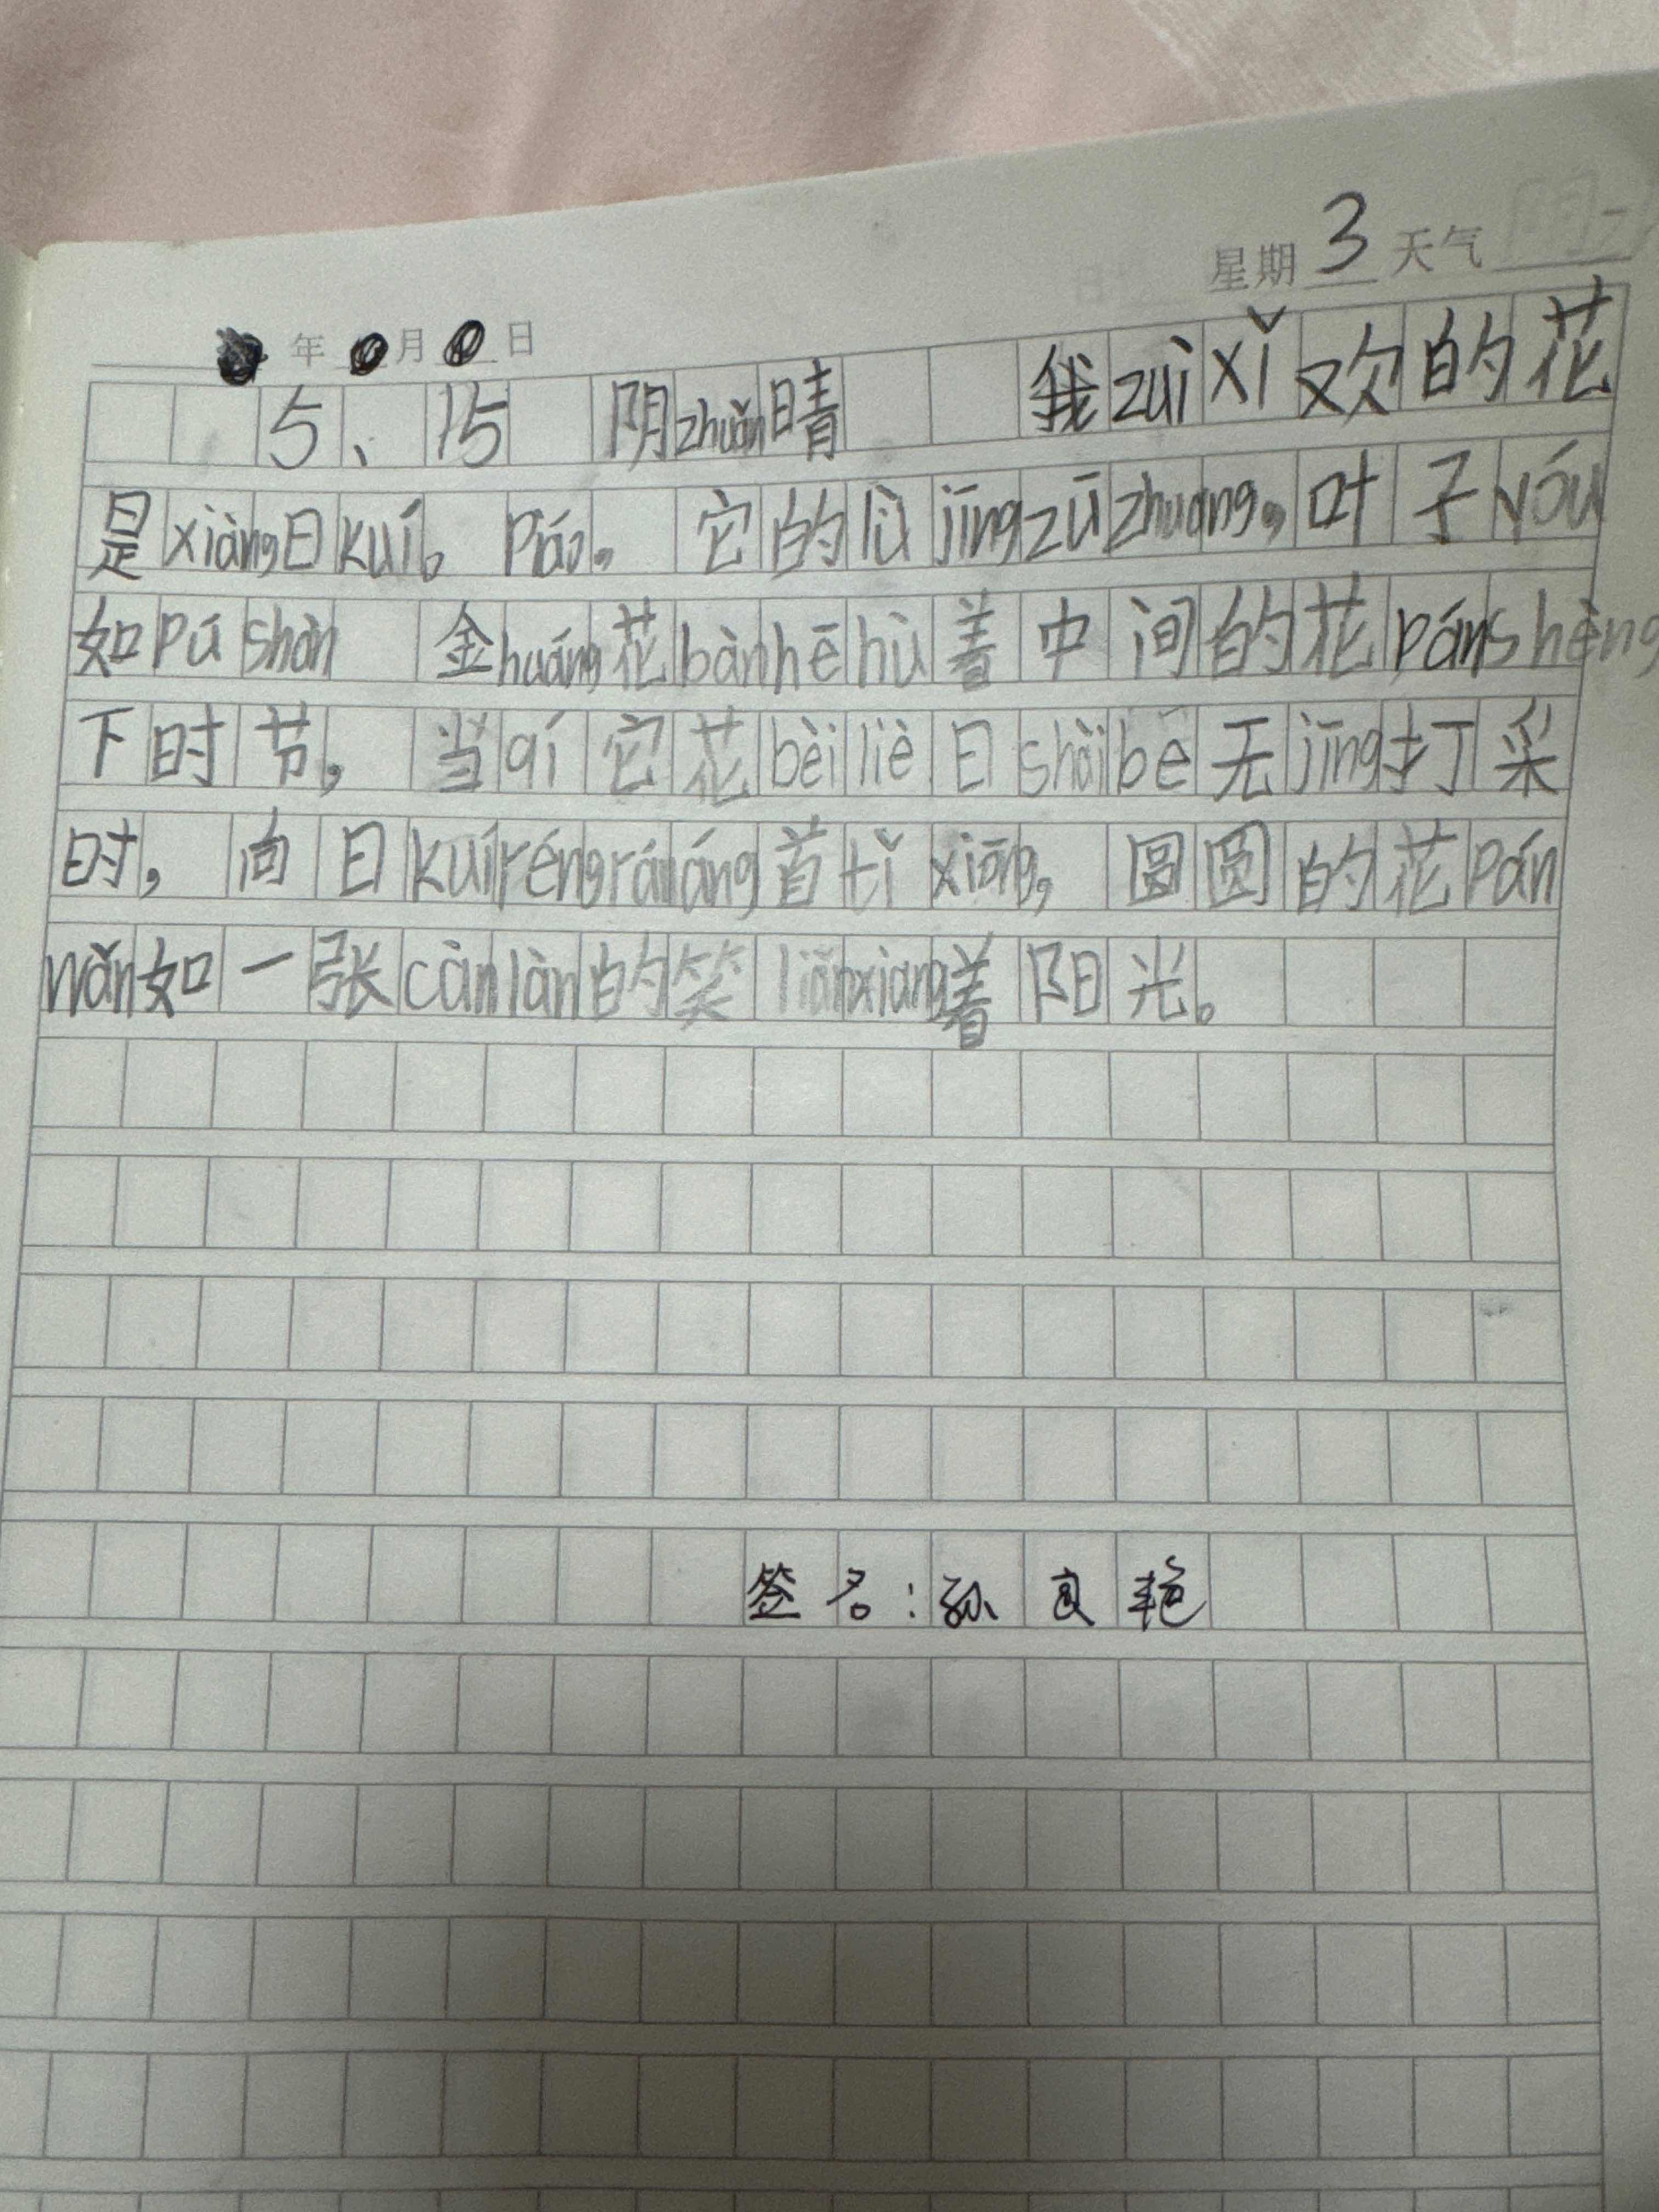 星期 3 天气
年 月 日
5、15 阴zhuǎn晴 我zuì xǐ欢的花
是xiàng日kuí。Piáo。它的lǜ jīng zū zhuang，叶子yóu
如Pú shàn 金huáng花bàn hē hù着中间的花Pán shèng
下时节，当qí它花bèi liè日shài bē无jīng打采
时，向日kuí réng rán áng首tǐ xiōng，圆圆的花Pán
wǎn如一张càn làn的笑liǎn xiang着阳光。
签名：孙良艳